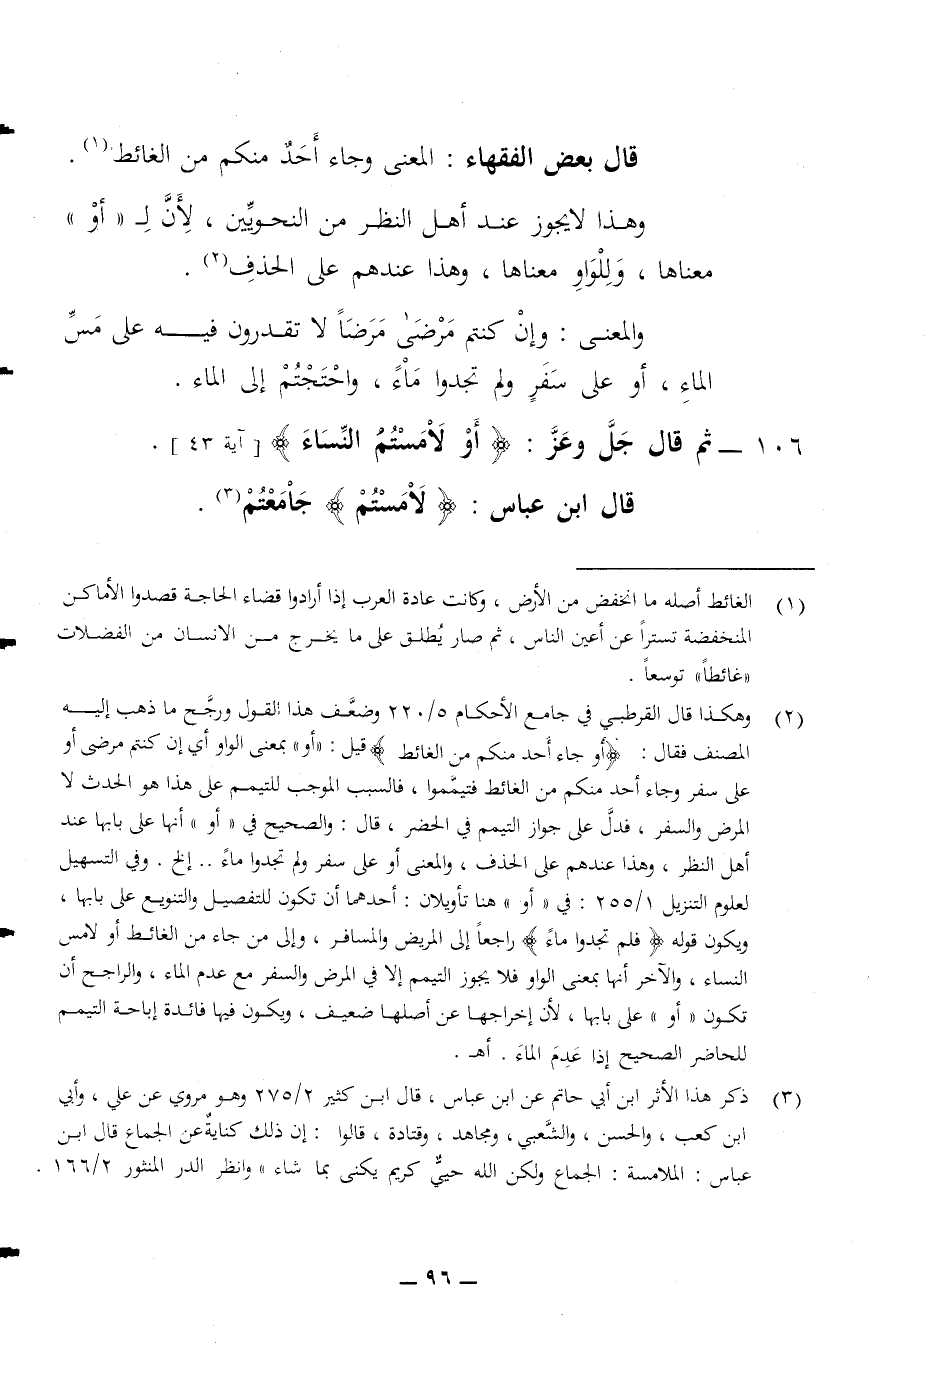 قال بعض الفقهاء : المعنى وجاء أَحَدٌ منكم من الغائط(١) .
وهـذا لايجوز عنـد أهـل النظـر من النحـويِّين ، لِأَنَّ لِـ « أوْ »
معناها ، وَلِلْوَاوِ معناها ، وهذا عندهم على الحذفِ(٢) .
والمعنـى : وإنْ كنتم مَرْضَىٰ مَرَضَاً لا تقـدرون فيـــه على مَسِّ
الماءِ ، أو على سَفَرٍ ولم تجدوا مَاْءً ، واحْتَجْتُمْ إلى الماء .
١٠٦ ـ ثم قال جَلَّ وعَزَّ : ﴿ أَوْ لَاْمَسْتُمُ النِّسَاءَ ﴾ [ آية ٤٣ ] .
قال ابن عباس : ﴿ لَاْمَسْتُمْ ﴾ جَاْمَعْتُمْ(٣) .
(١) الغائط أصله ما انخفض من الأرض ، وكانت عادة العرب إذا أرادوا قضاء الحاجـة قصدوا الأماكـن
المنخفضة تستراً عن أعين الناس ، ثم صار يُطلق على ما يخـرج مـن الانسان من الفضـلات
«غائطاً» توسعاً .
(٢) وهكـذا قال القرطبـي في جامع الأحكـام ٢٢٠/٥ وضعَّـف هذا القـول ورجَّـح ما ذهب إليــه
المصنف فقال : ﴿أو جاء أحد منكم من الغائط ﴾ قيل : «أو» بمعنى الواو أي إن كنتم مرضى أو
على سفر وجاء أحد منكم من الغائط فتيمَّموا ، فالسبب الموجب للتيمم على هذا هو الحدث لا
المرض والسفر ، فدلَّ على جواز التيمم في الحضر ، قال : والصحيح في « أو » أنها على بابها عند
أهل النظر ، وهذا عندهم على الحذف ، والمعنى أو على سفر ولم تجدوا ماءً .. إلخ . وفي التسهيل
لعلوم التنزيل ٢٥٥/١ : في « أو » هنا تأويلان : أحدهما أن تكون للتفصيل والتنويع على بابها ،
ويكون قوله ﴿ فلم تجدوا ماءً ﴾ راجعاً إلى المريض والمسافر ، وإلى من جاء من الغائـط أو لامس
النساء ، والآخر أنها بمعنى الواو فلا يجوز التيمم إلا في المرض والسفر مع عدم الماء ، والراجح أن
تكـون « أو » على بابها ، لأن إخراجهـا عن أصلهـا ضعيـف ، ويكـون فيها فائـدة إباحـة التيمـم
للحاضر الصحيح إذا عَدِمَ الماءَ . أهـ .
(٣) ذكر هذا الأثر ابن أبي حاتم عن ابن عباس ، قال ابـن كثير ٢٧٥/٢ وهـو مروي عن علي ، وأبي
ابن كعب ، والحسن ، والشَّعبي، ومجاهد ، وقتادة ، قالوا : إن ذلك كنايةٌ عن الجماع قال ابـن
عباس : الملامسة : الجماع ولكن الله حييٌّ كريم يكنى بما شاء » وانظر الدر المنثور ١٦٦/٢ .
ـ ٩٦ ـ